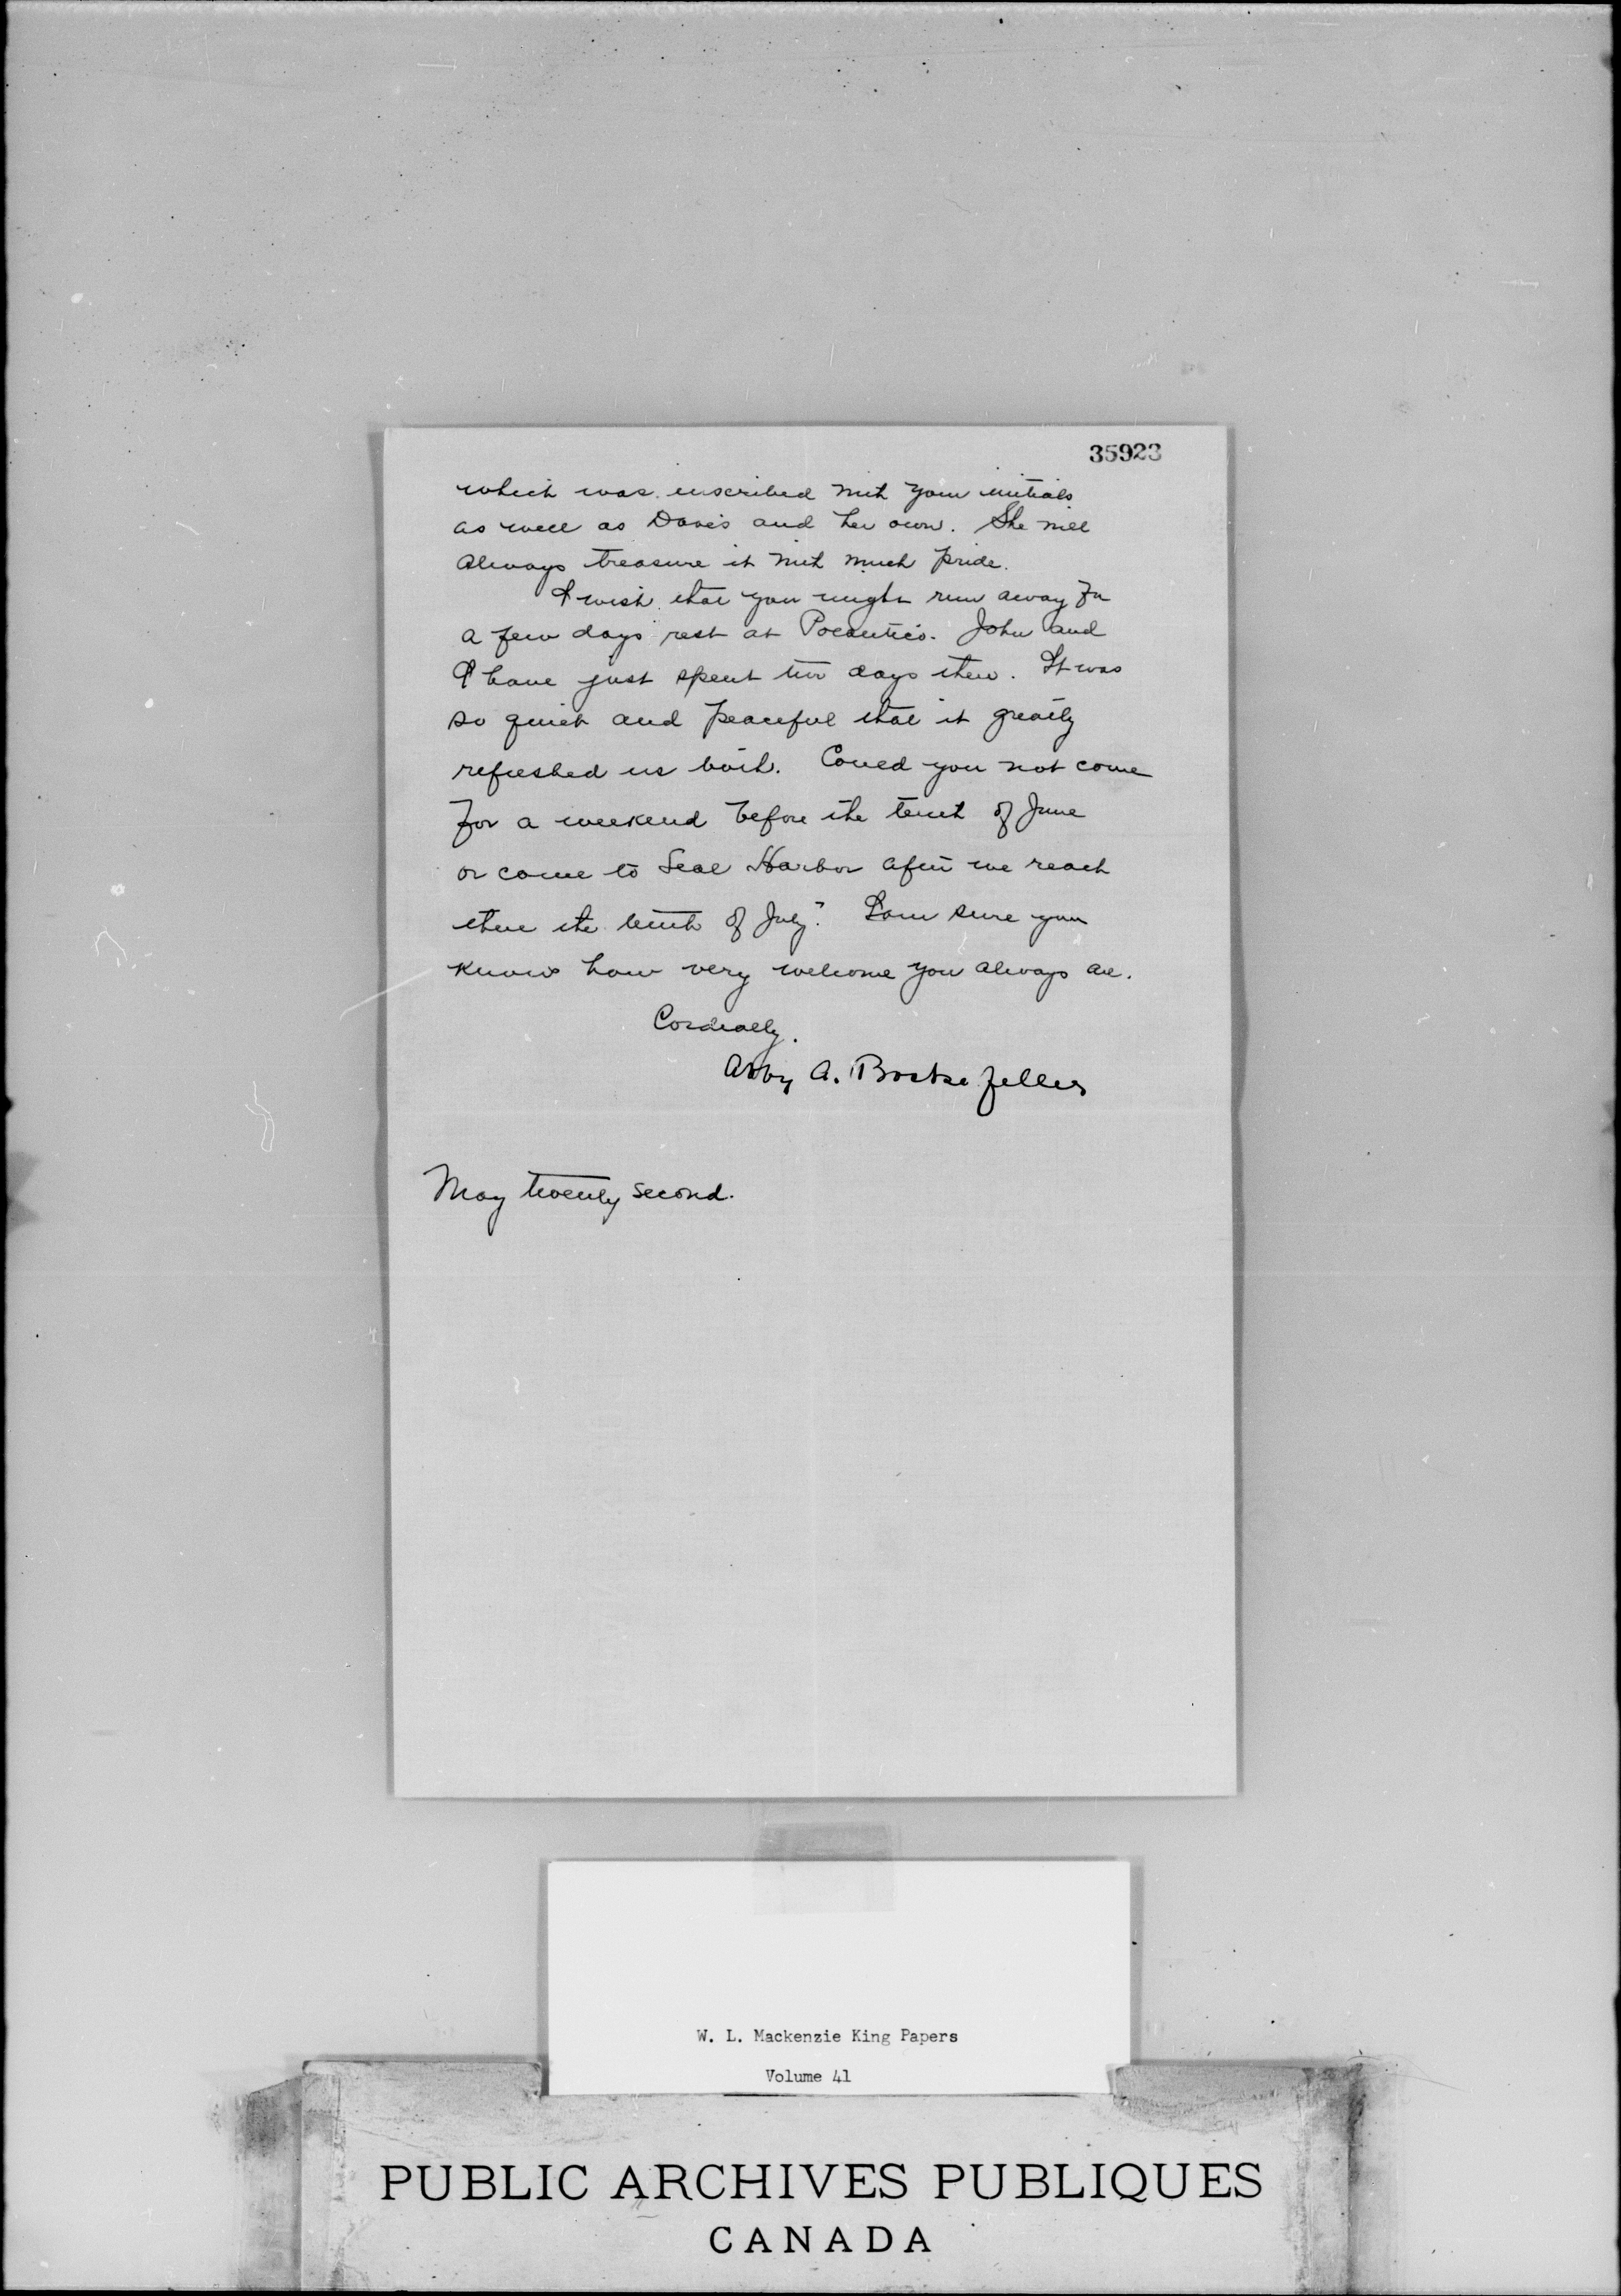 35923
which was inscribed with your initials
as well as Dave's and her own. She will
always treasure it with much pride.
I wish that you might run away for
a few days rest at Pocantico. John and
I have just spent two days there. It was
so quiet and peaceful that it greatly
refreshed us both. Could you not come
for a weekend before the tenth of June
or come to Seal Harbor after we reach
there the tenth of July? I am sure you
know how very welcome you always are.
Cordially.
Abby A. Rockefeller
May twenty second.
W. L. Mackenzie King Papers
Volume 41
PUBLIC ARCHIVES PUBLIQUES
CANADA